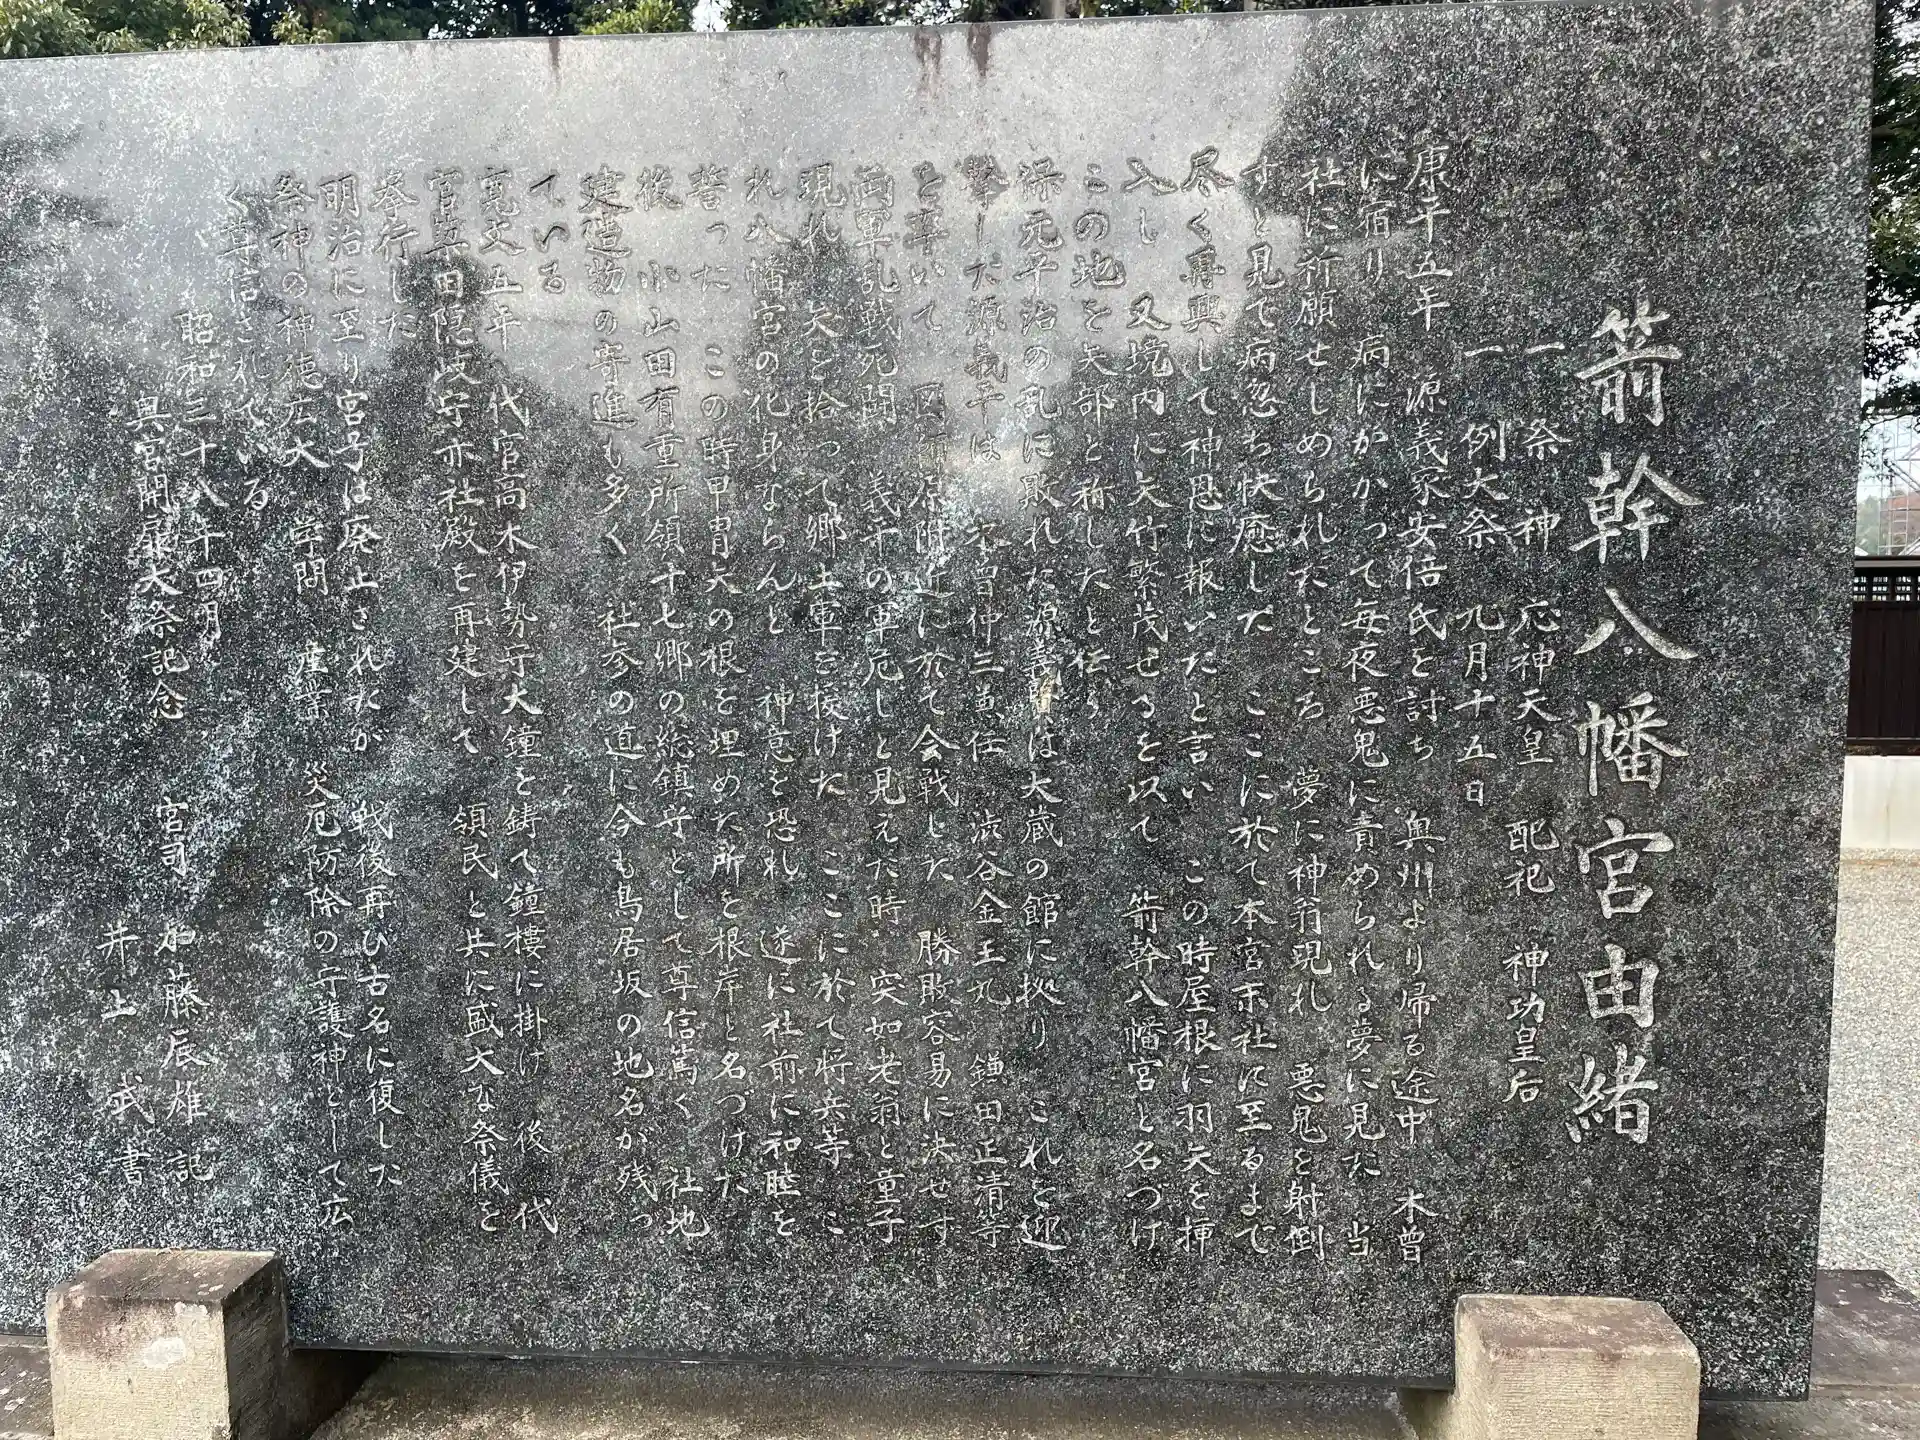 箭幹八幡宮由緒
一 祭 神 応神天皇 配祀 神功皇后
一 例大祭 九月十五日
康平五年 源義家安倍氏を討ち 奥州より帰る途中 木曽
に宿り 病にかかって毎夜悪鬼に責められる夢に見た 当
社に祈願せしめられたところ 夢に神翁現れ 悪鬼を射倒
すと見て病忽ち快癒した ここに於て本宮末社に至るまで
尽く再興して神恩に報いたと言い この時屋根に羽矢を挿
入し 又境内に矢竹繁茂せるを以て 箭幹八幡宮と名づけ
この地を矢部と称したと伝う
保元平治の乱に敗れた源義賢は大蔵の館に拠り これを迎
撃した源義平は 木曽仲三兼任 渋谷金王丸 鎌田正清等
を率いて 図師原附近に於て会戦した 勝敗容易に決せず
両軍乱戦死闘 義平の軍危しと見えた時 突如老翁と童子
現れ 矢を拾って郷土軍を援けた ここに於て将兵等 こ
れ八幡宮の化身ならんと 神意を恐れ 遂に社前に和睦を
誓った この時甲冑矢の根を埋めた所を根岸と名づけた
後 小山田有重所領十七郷の総鎮守として尊信篤く 社地
建造物の寄進も多く 社参の道に今も鳥居坂の地名が残っ
ている
寛文五年 代官高木伊勢守大鐘を鋳て鐘楼に掛け 後 代
官草田隠岐守亦社殿を再建して 領民と共に盛大な祭儀を
奉行した
明治に至り宮号は廃止されたが 戦後再び古名に復した
祭神の神徳広大 学問 産業 災厄防除の守護神として広
く尊信されている
昭和三十八年四月
奥宮開扉大祭記念 宮司 加藤辰雄 記
井上 武 書